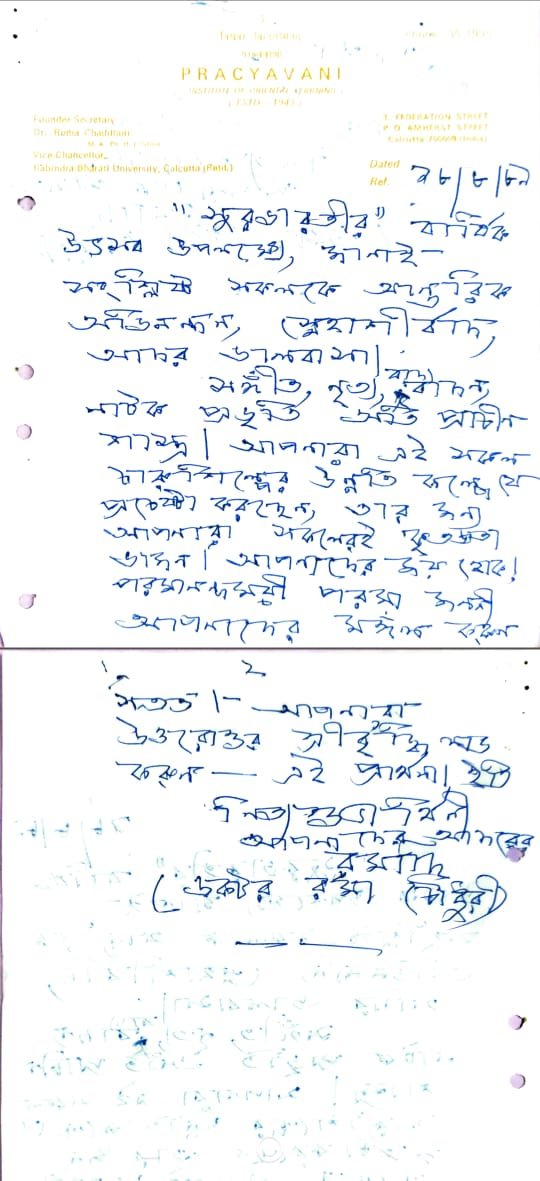 PRACYAVANI
INSTITUTE OF ORIENTAL LEARNING
( ESTD. 1943 )
Founder Secretary
Dr. Roma Chaudhuri
Vice-Chancellor,
Rabindra Bharati University, Calcutta (Retd.)
3, FEDERATION STREET
P. O. AMHERST STREET
Calcutta-700009 (India)
Dated
Ref.
"সুরভারতীর" বার্ষিক
উৎসব উপলক্ষ্যে, জানাই—
সংশ্লিষ্ট সকলকে আন্তরিক
অভিনন্দন, স্নেহাশীর্বাদ,
আদর ভালবাসা।
সঙ্গীত, নৃত্য, বাদ্য,
নাটক প্রভৃতি অতি প্রাচীন
শাস্ত্র। আপনারা এই সকল
চারুশিল্পের উন্নতি কল্পে যে
প্রচেষ্টা করছেন, তার জন্য
আপনারা সকলেরই কৃতজ্ঞতা
ভাজন। আপনাদের জয় হোক!
পরমানন্দময়ী পরমা জননী
আপনাদের মঙ্গল করুন
2
সতত।— আপনারা
উত্তরোত্তর শ্রীবৃদ্ধি লাভ
করুন — এই প্রার্থনা। ইতি
আপনাদের আদরের
রমাদি
(ডক্টর রমা চৌধুরী)